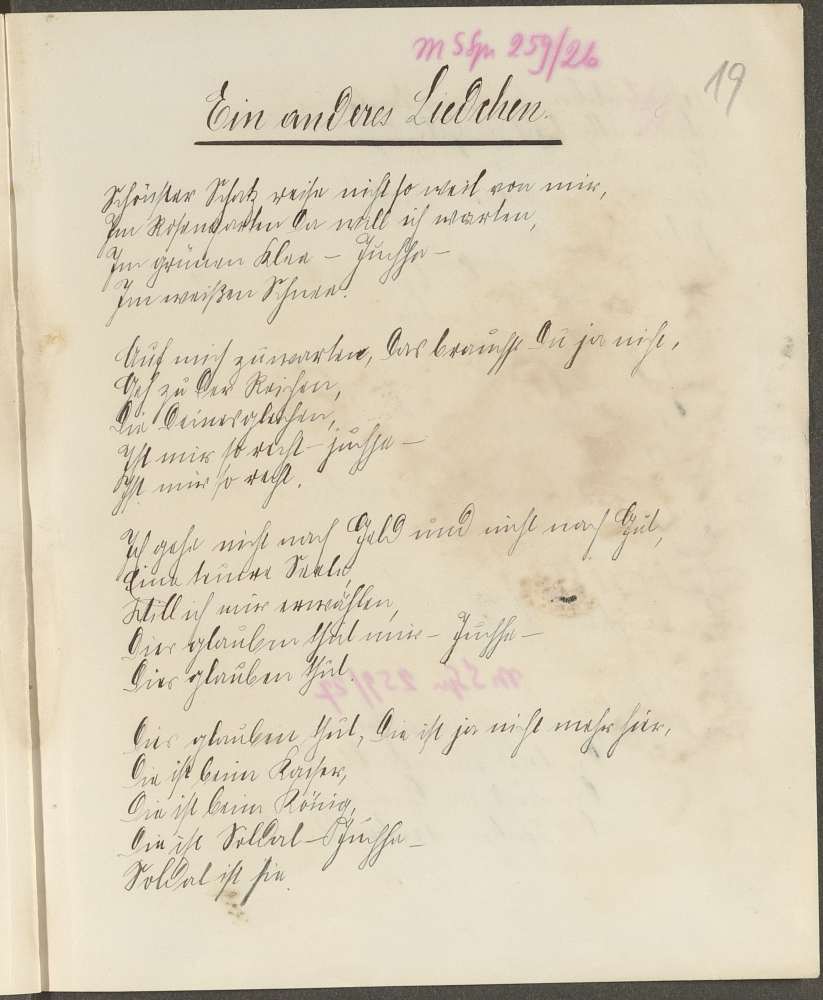 m Spr 259/26
19
Ein anderes Liedchen.
Schönster Schatz reise nicht so weit von mir,
Im Rosengarten da will ich warten,
Im grünen Klee – Juchhe –
Im weißen Schnee.
Auf mich zuwarten, das brauchst Du ja nicht,
Geh zu der Reichen,
Die Deinesgleichen,
Ist mir so recht – juchhe –
Ist mir so recht.
Ich gehe nicht nach Geld und nicht nach Gut,
Eine teure Seele
Will ich mir erwählen,
Dies glauben thut mir – Juchhe –
Dies glauben thut.
Dies glauben thut, Die ist ja nicht mehr hier,
Die ist beim Kaiser,
Die ist beim König,
Die ist Soldat – Juchhe –
Soldat ist sie.